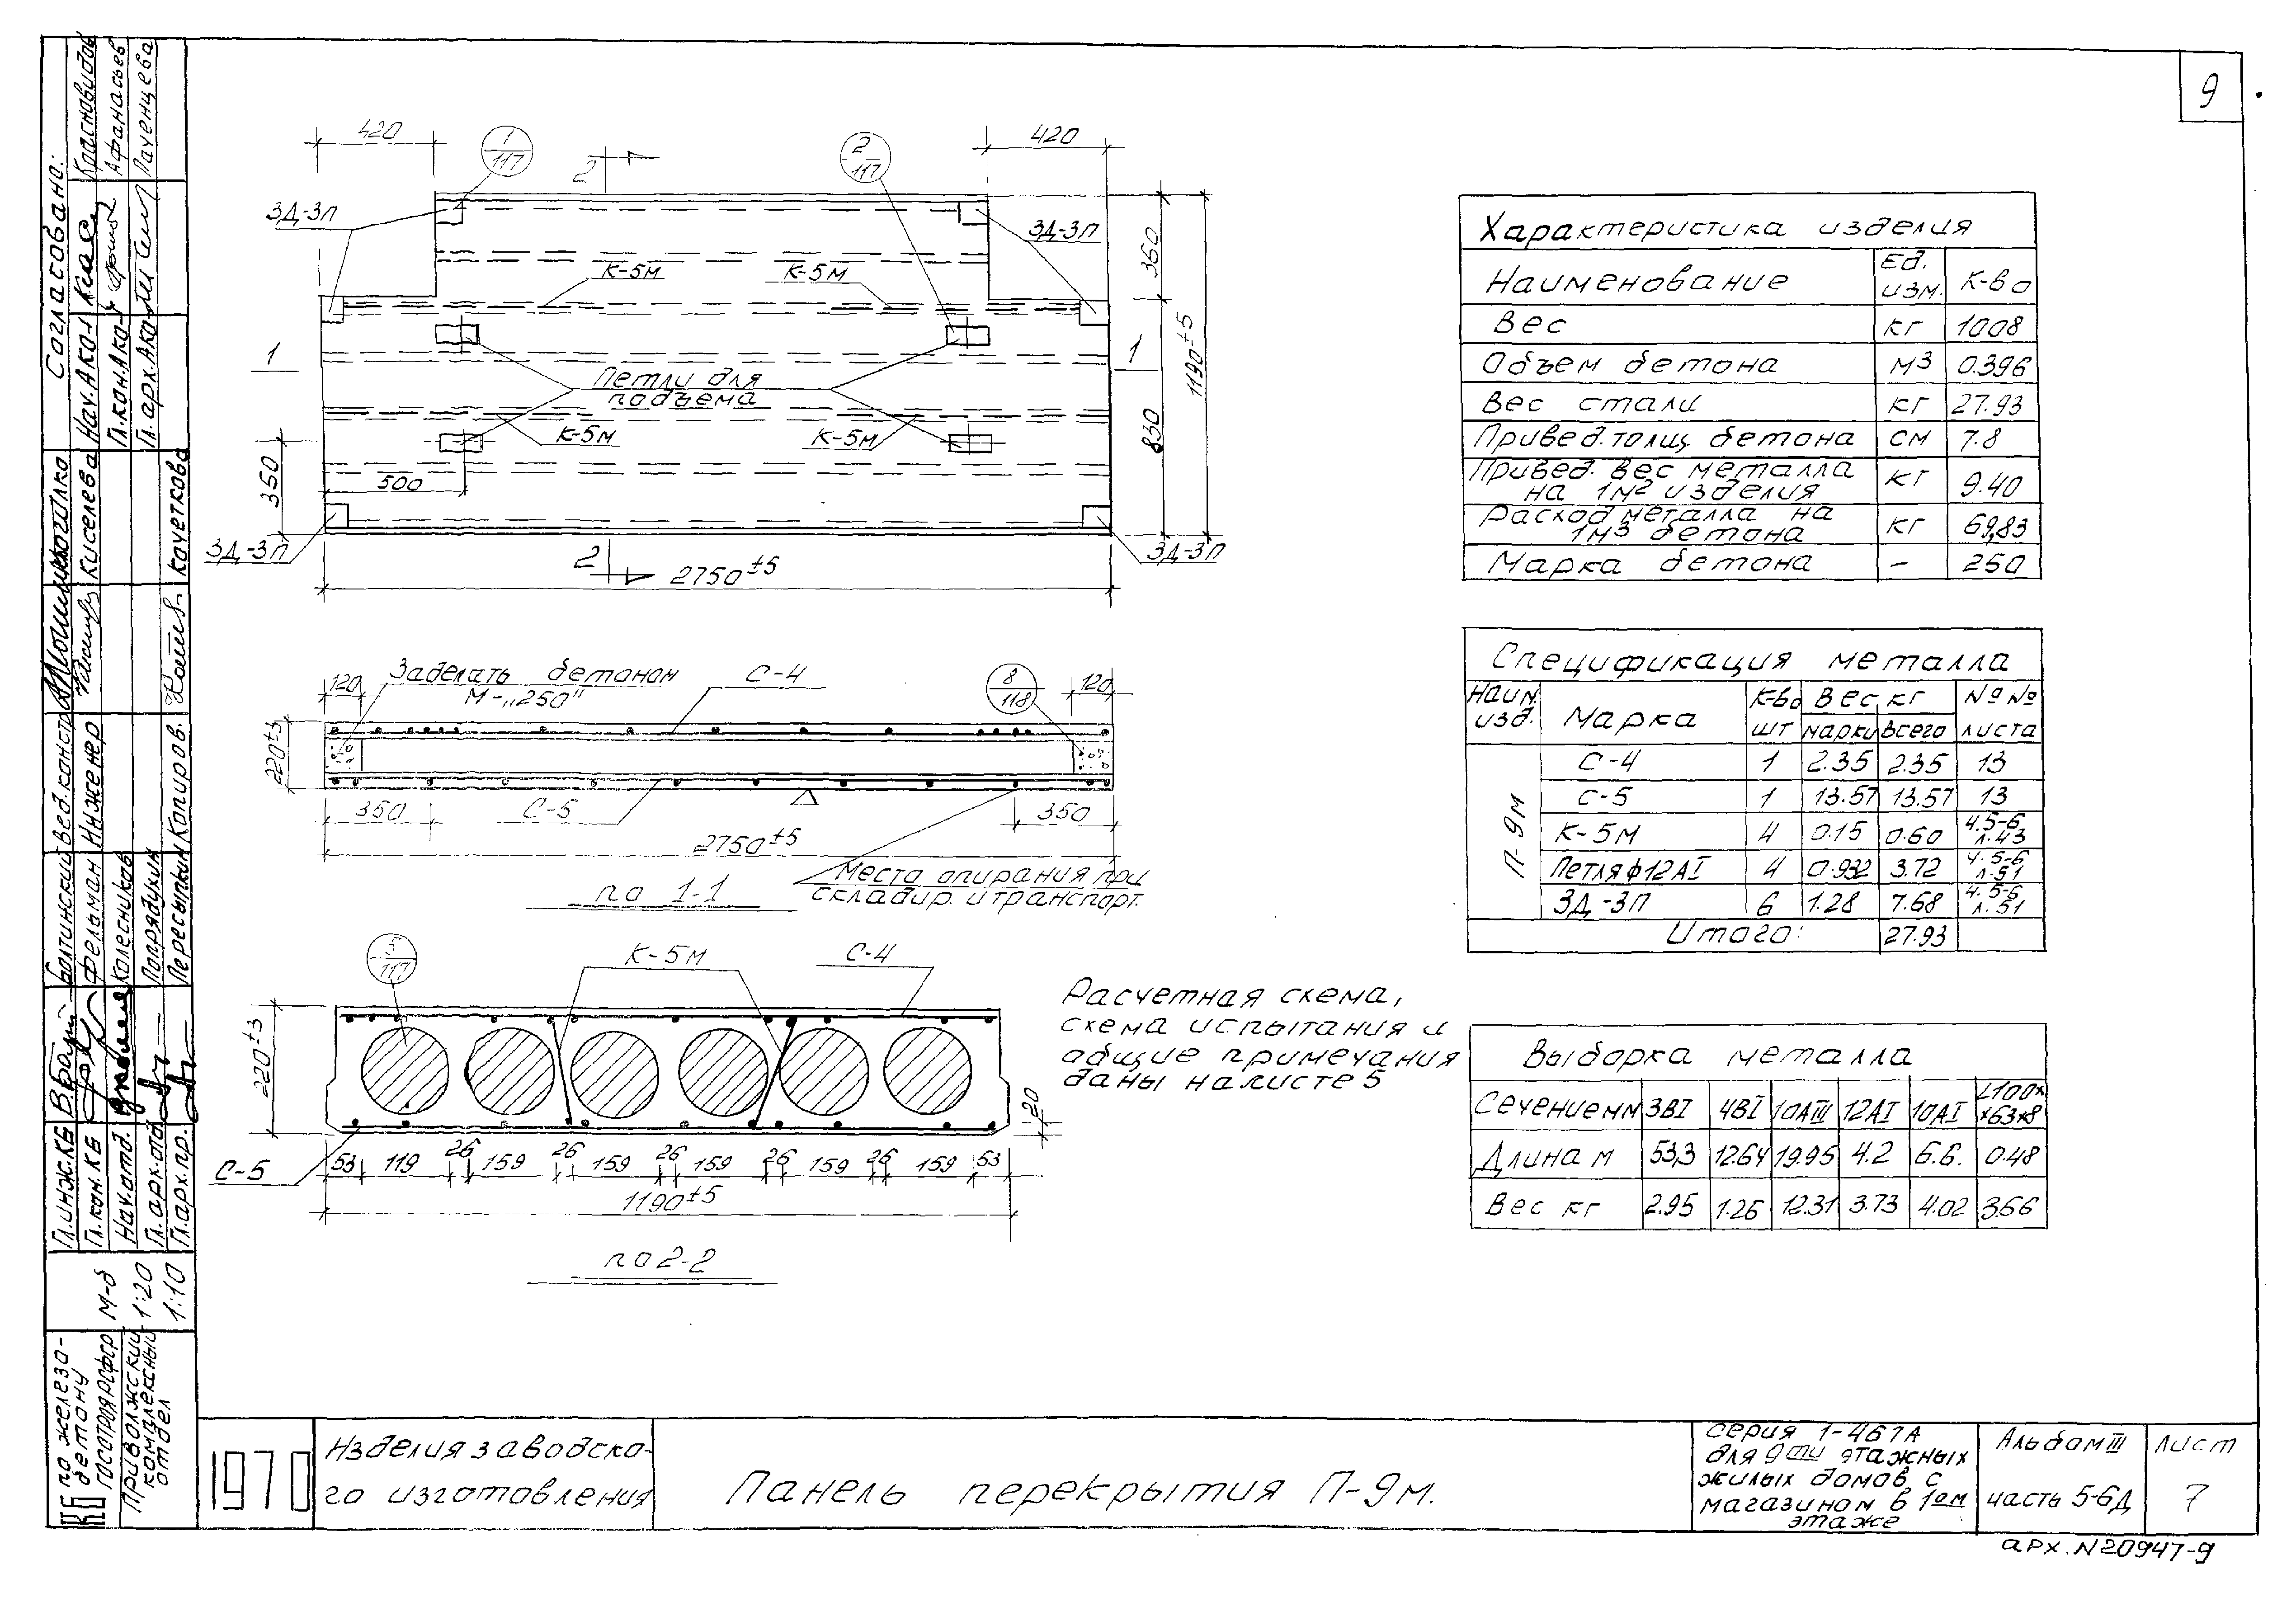 9
420
1
117
2
2
117
420
ЗД-3П
ЗД-3П
К-5м
К-5м
360
1
1
1190±5
Петли для
подъема
К-5м
К-5м
830
350
500
ЗД-3П
ЗД-3П
2
2750±5
120
Заделать бетоном
М-„250"
С-4
8
118
120
220±3
350
С-5
350
2750±5
Места опирания при
складир. и транспорт.
по 1-1
5
117
К-5м
С-4
220±3
20
С-5
53
119
26
159
26
159
26
159
26
159
26
159
53
1190±5
по 2-2
Расчетная схема,
схема испытания и
общие примечания
даны на листе 5
Характеристика изделия
Наименование Ед. изм. К-во
Вес кг 1008
Объем бетона м3 0.396
Вес стали кг 27.93
Привед. толщ. бетона см 7.8
Привед. вес металла
на 1м2 изделия кг 9.40
Расход металла на
1м3 бетона кг 69,83
Марка бетона – 250
Спецификация металла
Наим. изд. Марка К-во шт Вес, кг №№ листа
марки всего
П-9м
С-4 1 2.35 2.35 13
С-5 1 13.57 13.57 13
К-5м 4 0.15 0.60 ч.5-6 л.43
Петля ф12АI 4 0.932 3.72 ч.5-6 л.51
ЗД-3П 6 1.28 7.68 ч.5-6 л.51
Итого: 27.93
Выборка металла
Сечение мм 3ВI 4ВI 10АIII 12АI 10АI L100××63×8
Длина м 53,3 12.64 19.95 4.2 6.6. 0.48
Вес кг 2.95 1.26 12.31 3.73 4.02 3.66
Согласовано:
Нач. Ако-1
Красновидов
Гл. кон. Ако-1
Афанасьев
Гл. арх. Ако-1
Вед. констр.
Инженер
Киселева
Копиров.
Кочеткова
Гл. инж. КБ
Болтинский
Гл. кон. КБ
Фельман
Нач. отд.
Колесников
Гл. арх. отд.
Попрядухин
Гл. арх. пр.
Пересыпкин
М-б
1:20
1:10
КБ по железо-
бетону
Госстроя РСФСР
Приволжский
комплексный
отдел
1970
Изделия заводско-
го изготовления
Панель перекрытия П-9м.
серия 1-467А
для 9ти этажных
жилых домов с
магазином в 1ом
этаже
Альбом III
часть 5-6Д
Лист
7
арх. N 20947-9